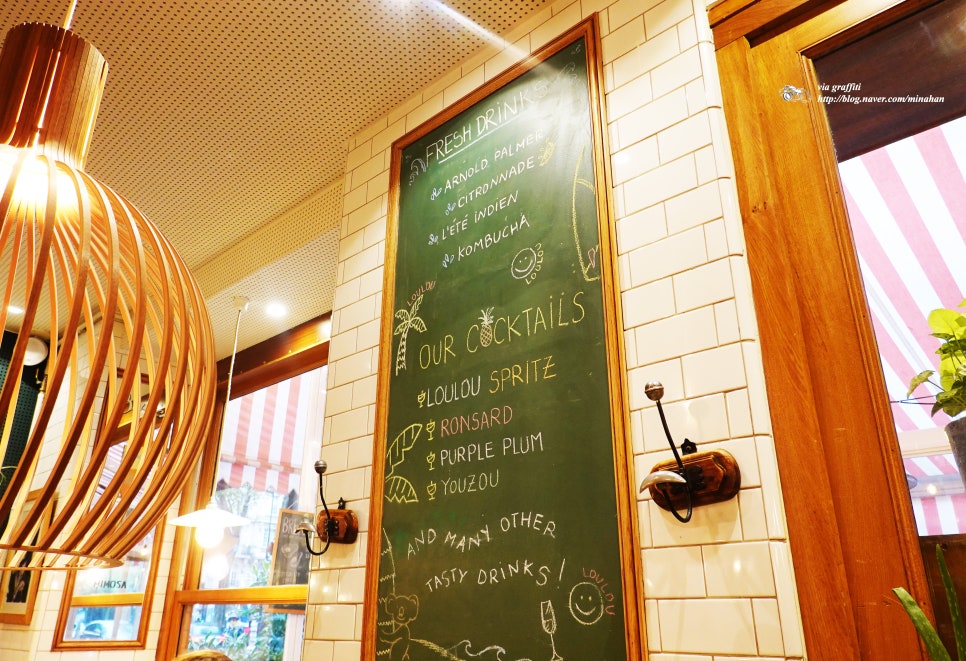 via graffiti
http://blog.naver.com/minahan
FRESH DRINKS
ARNOLD PALMER
CITRONNADE
L'ÉTÉ INDIEN
KOMBUCHA
LOULOU
LOULOU
OUR COCKTAILS
LOULOU SPRITZ
RONSARD
PURPLE PLUM
YOUZOU
AND MANY OTHER
TASTY DRINKS!
LOULOU
MIMOSA